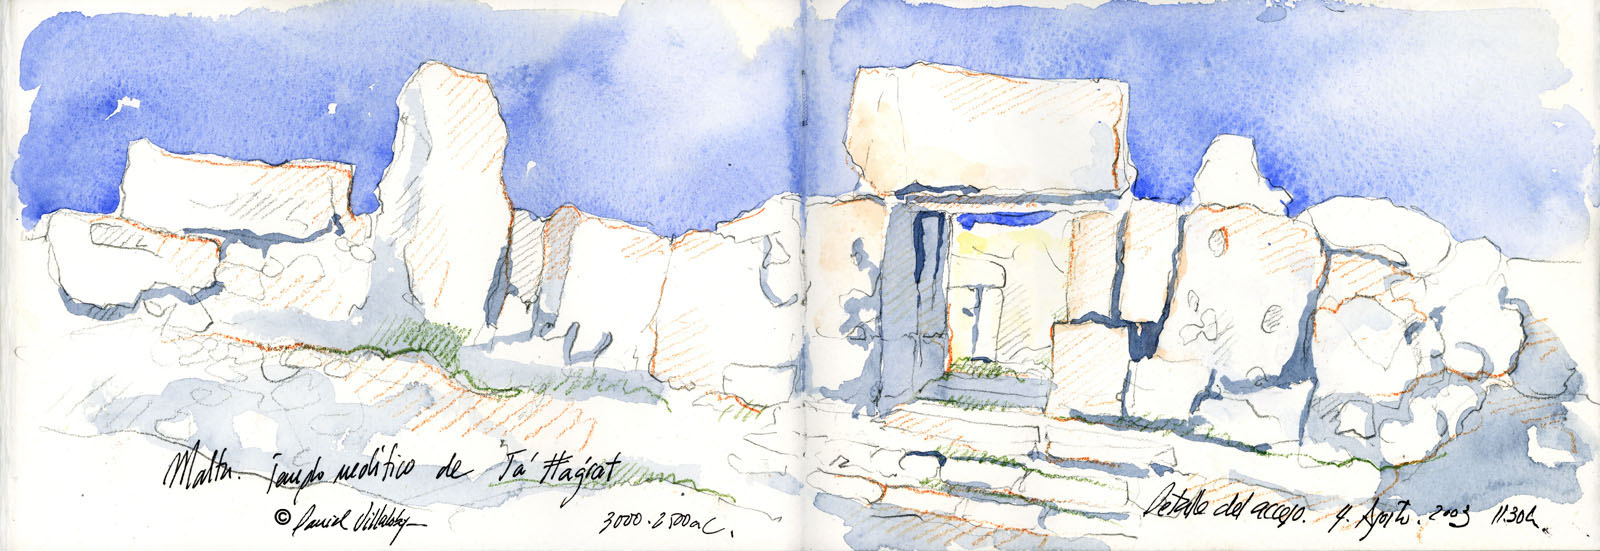 Malta. Templo neolítico de Ta' Hagrat
© Daniel Villalobos
3000-2500 a.C.
Detalle del acceso. 4. Agosto. 2003 11.30h.